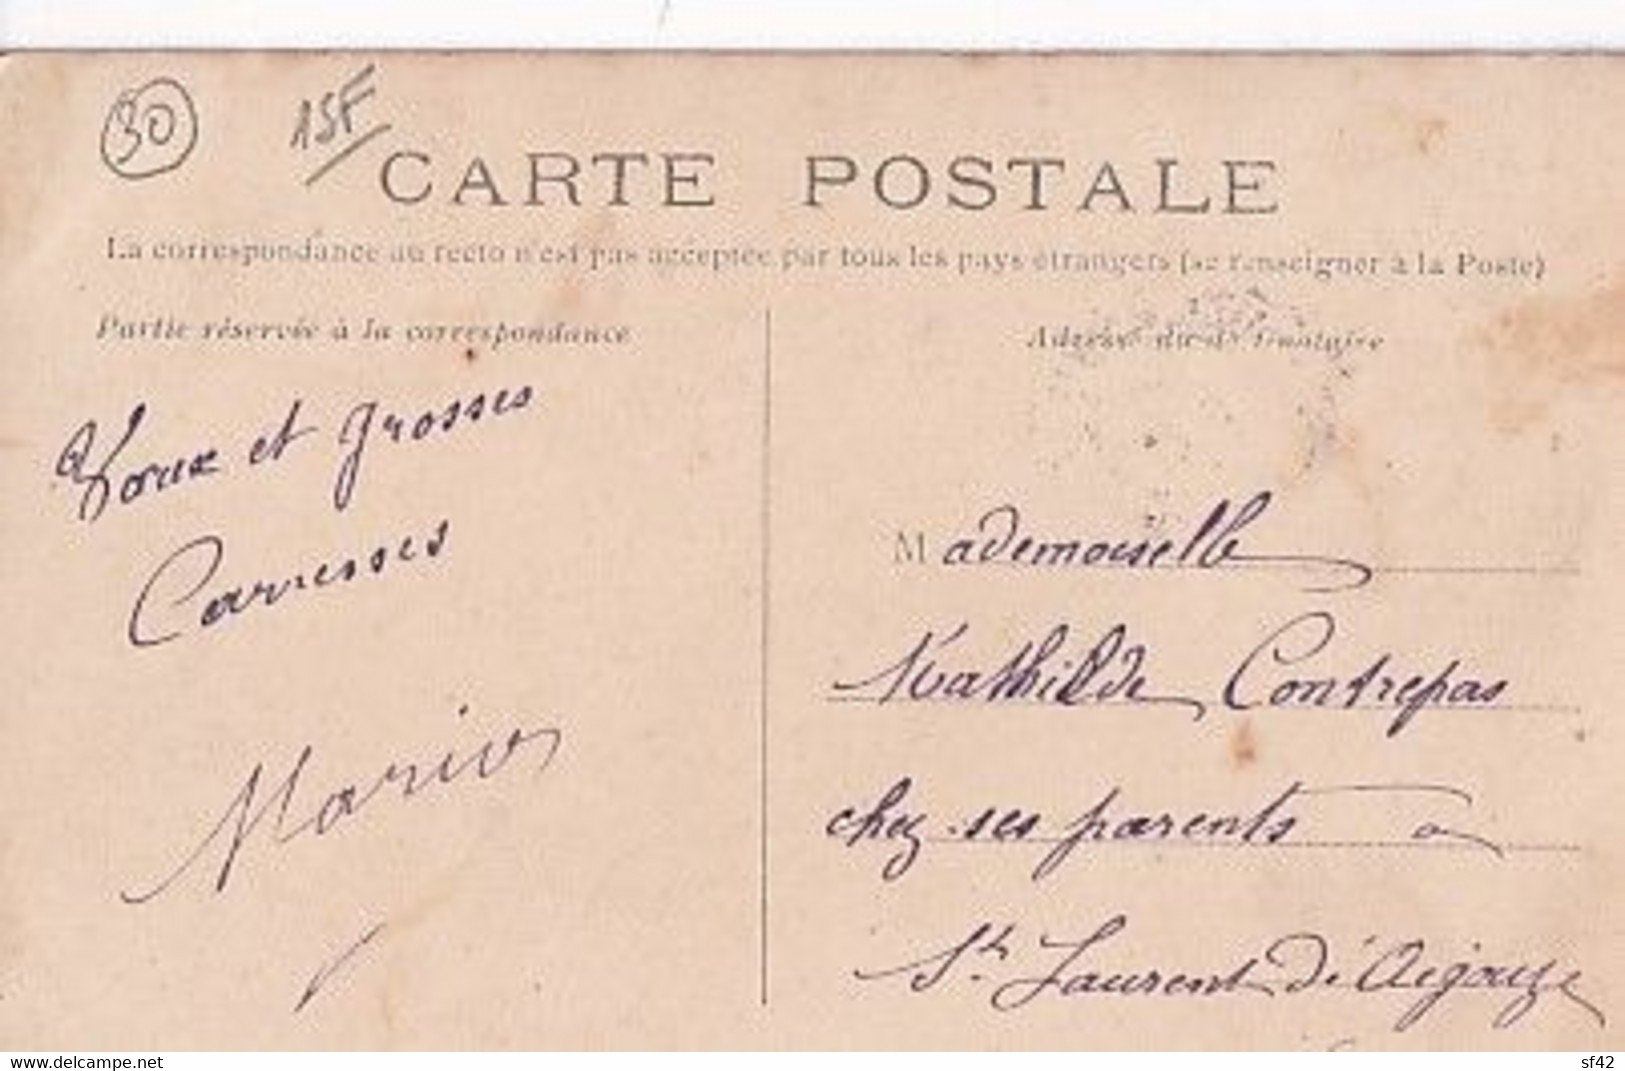 30
15F
CARTE POSTALE
La correspondance au recto n'est pas acceptée par tous les pays étrangers (se renseigner à la Poste)
Partie réservée à la correspondance
Adresse du destinataire
Voeux et grosses
Carresses
Marius
Mademoiselle
Mathilde Contrepas
chez ses parents a
St Laurent d'Aigouze
delcampe.net
sf42